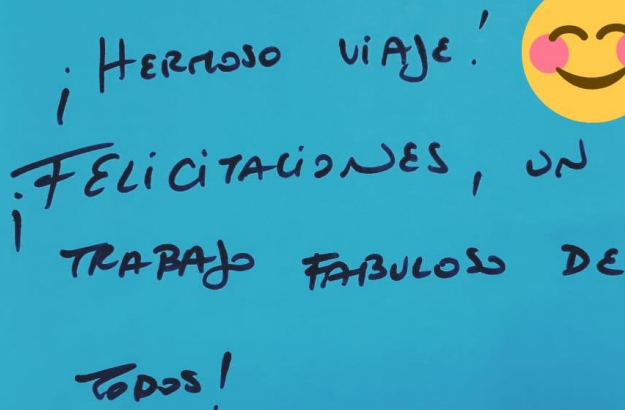 ¡HERMOSO ViAJE!
¡FELiCiTACiONES, UN
TRABAJO FABULOSO DE
TODOS!